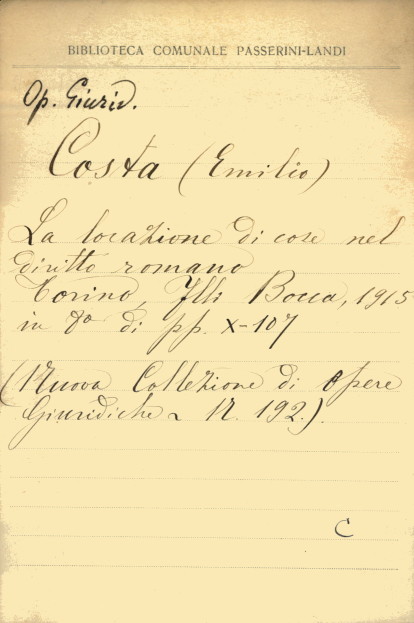 BIBLIOTECA COMUNALE PASSERINI-LANDI
Op. Giurid.
Costa (Emilio)
La locazione di cose nel
diritto romano
Torino, Flli Bocca, 1915
in 8º di pp. X-107
(Nuova Collezione di Opere
Giuridiche ~ N. 192.)
C